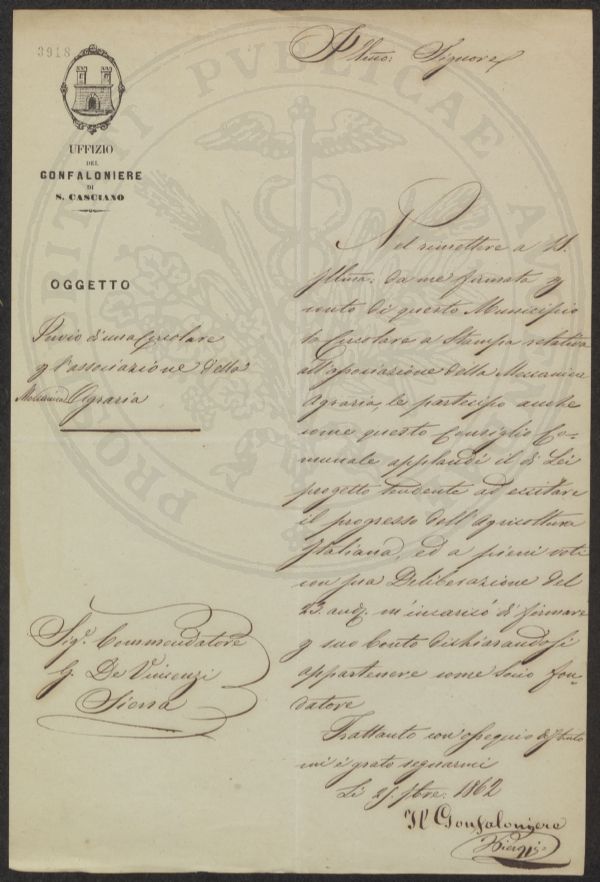 3918
UFFIZIO
DEL
GONFALONIERE
DI
S. CASCIANO
OGGETTO
Invio d'una Circolare
p l'associazione della
Meccanica Agraria
Sigr. Commendatore
G. De Vincenzi
Siena
Illmo: Signore
Nel rimettere a V. S.
Illma: da me firmata p
conto di questo Municipio
la Circolare a Stampa relativa
all'associazione della Meccanica
Agraria, le partecipo anche
come questo Consiglio Co-
munale applaudì il di Lei
progetto tendente ad eccitare
il progresso dell'Agricoltura
Italiana, ed a pieni voti
con sua Deliberazione del
23. and. m'incaricò di firmare
p suo Conto dichiarandosi
appartenere come Socio fon-
datore
Frattanto con ossequio distinto
mi è grato segnarmi
Li 25. 1862
Il Gonfaloniere
PVBLICAE